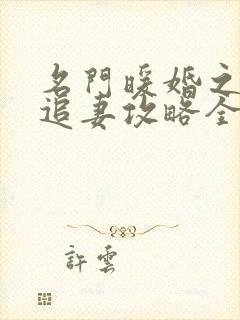 名門暖婚之
追妻攻略全
許雲